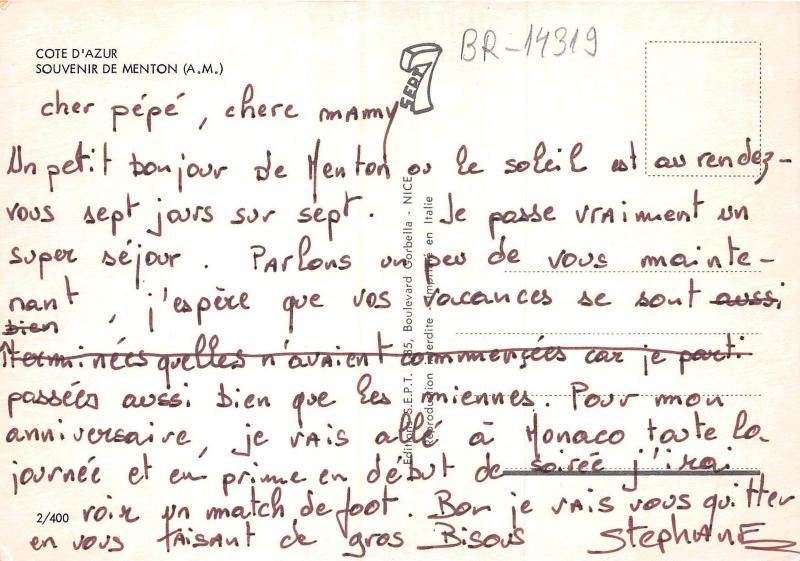 COTE D'AZUR
SOUVENIR DE MENTON (A.M.)
SEPT
BR-14319
cher pépé, chere mamy
Un petit bonjour de Menton ou le soleil est au rendez-
vous sept jours sur sept. Je passe vraiment un
super séjour. Parlons un peu de vous mainte-
nant, j'espère que vos vacances se sont aussi
bien
terminées quelles n'avaient commencées car je parti
passées aussi bien que les miennes. Pour mon
anniversaire, je vais allé à Monaco toute la
journée et en prime en début de soirée j'irai
voir un match de foot. Bon je vais vous quitter
en vous faisant de gros Bisous Stephane
2/400
Editions S.E.P.T. 85, Boulevard Gorbella - NICE
Reproduction interdite - Imprimé en Italie